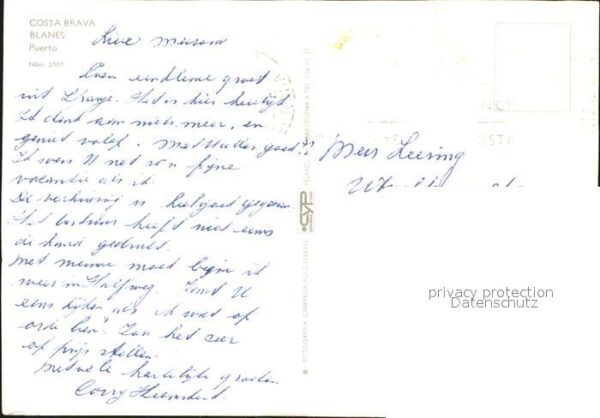 COSTA BRAVA
BLANES
Puerto
Núm. 2303
Lieve mevrouw
Even een kleine groet
uit Spanje. Het is hier heerlijk.
Ik denk aan niets meer, en
geniet volop. Met U alles goed??
Ik wens U net zo'n fijne
vacantie als ik.
De verhuizing is heel goed gegaan.
Het bestuur heeft niet eens
de hand gedrukt.
met nieuwe moed begin ik
weer in Halfweg. Komt U
eens kijken als ik wat op
orde ben? Zou het zeer
op prijs stellen.
Met vele hartelijke groeten
Corry
Mevr Leering
CYP
FOTOGRAFIA CAMPAÑA PUIG FERRAN
privacy protection
Datenschutz